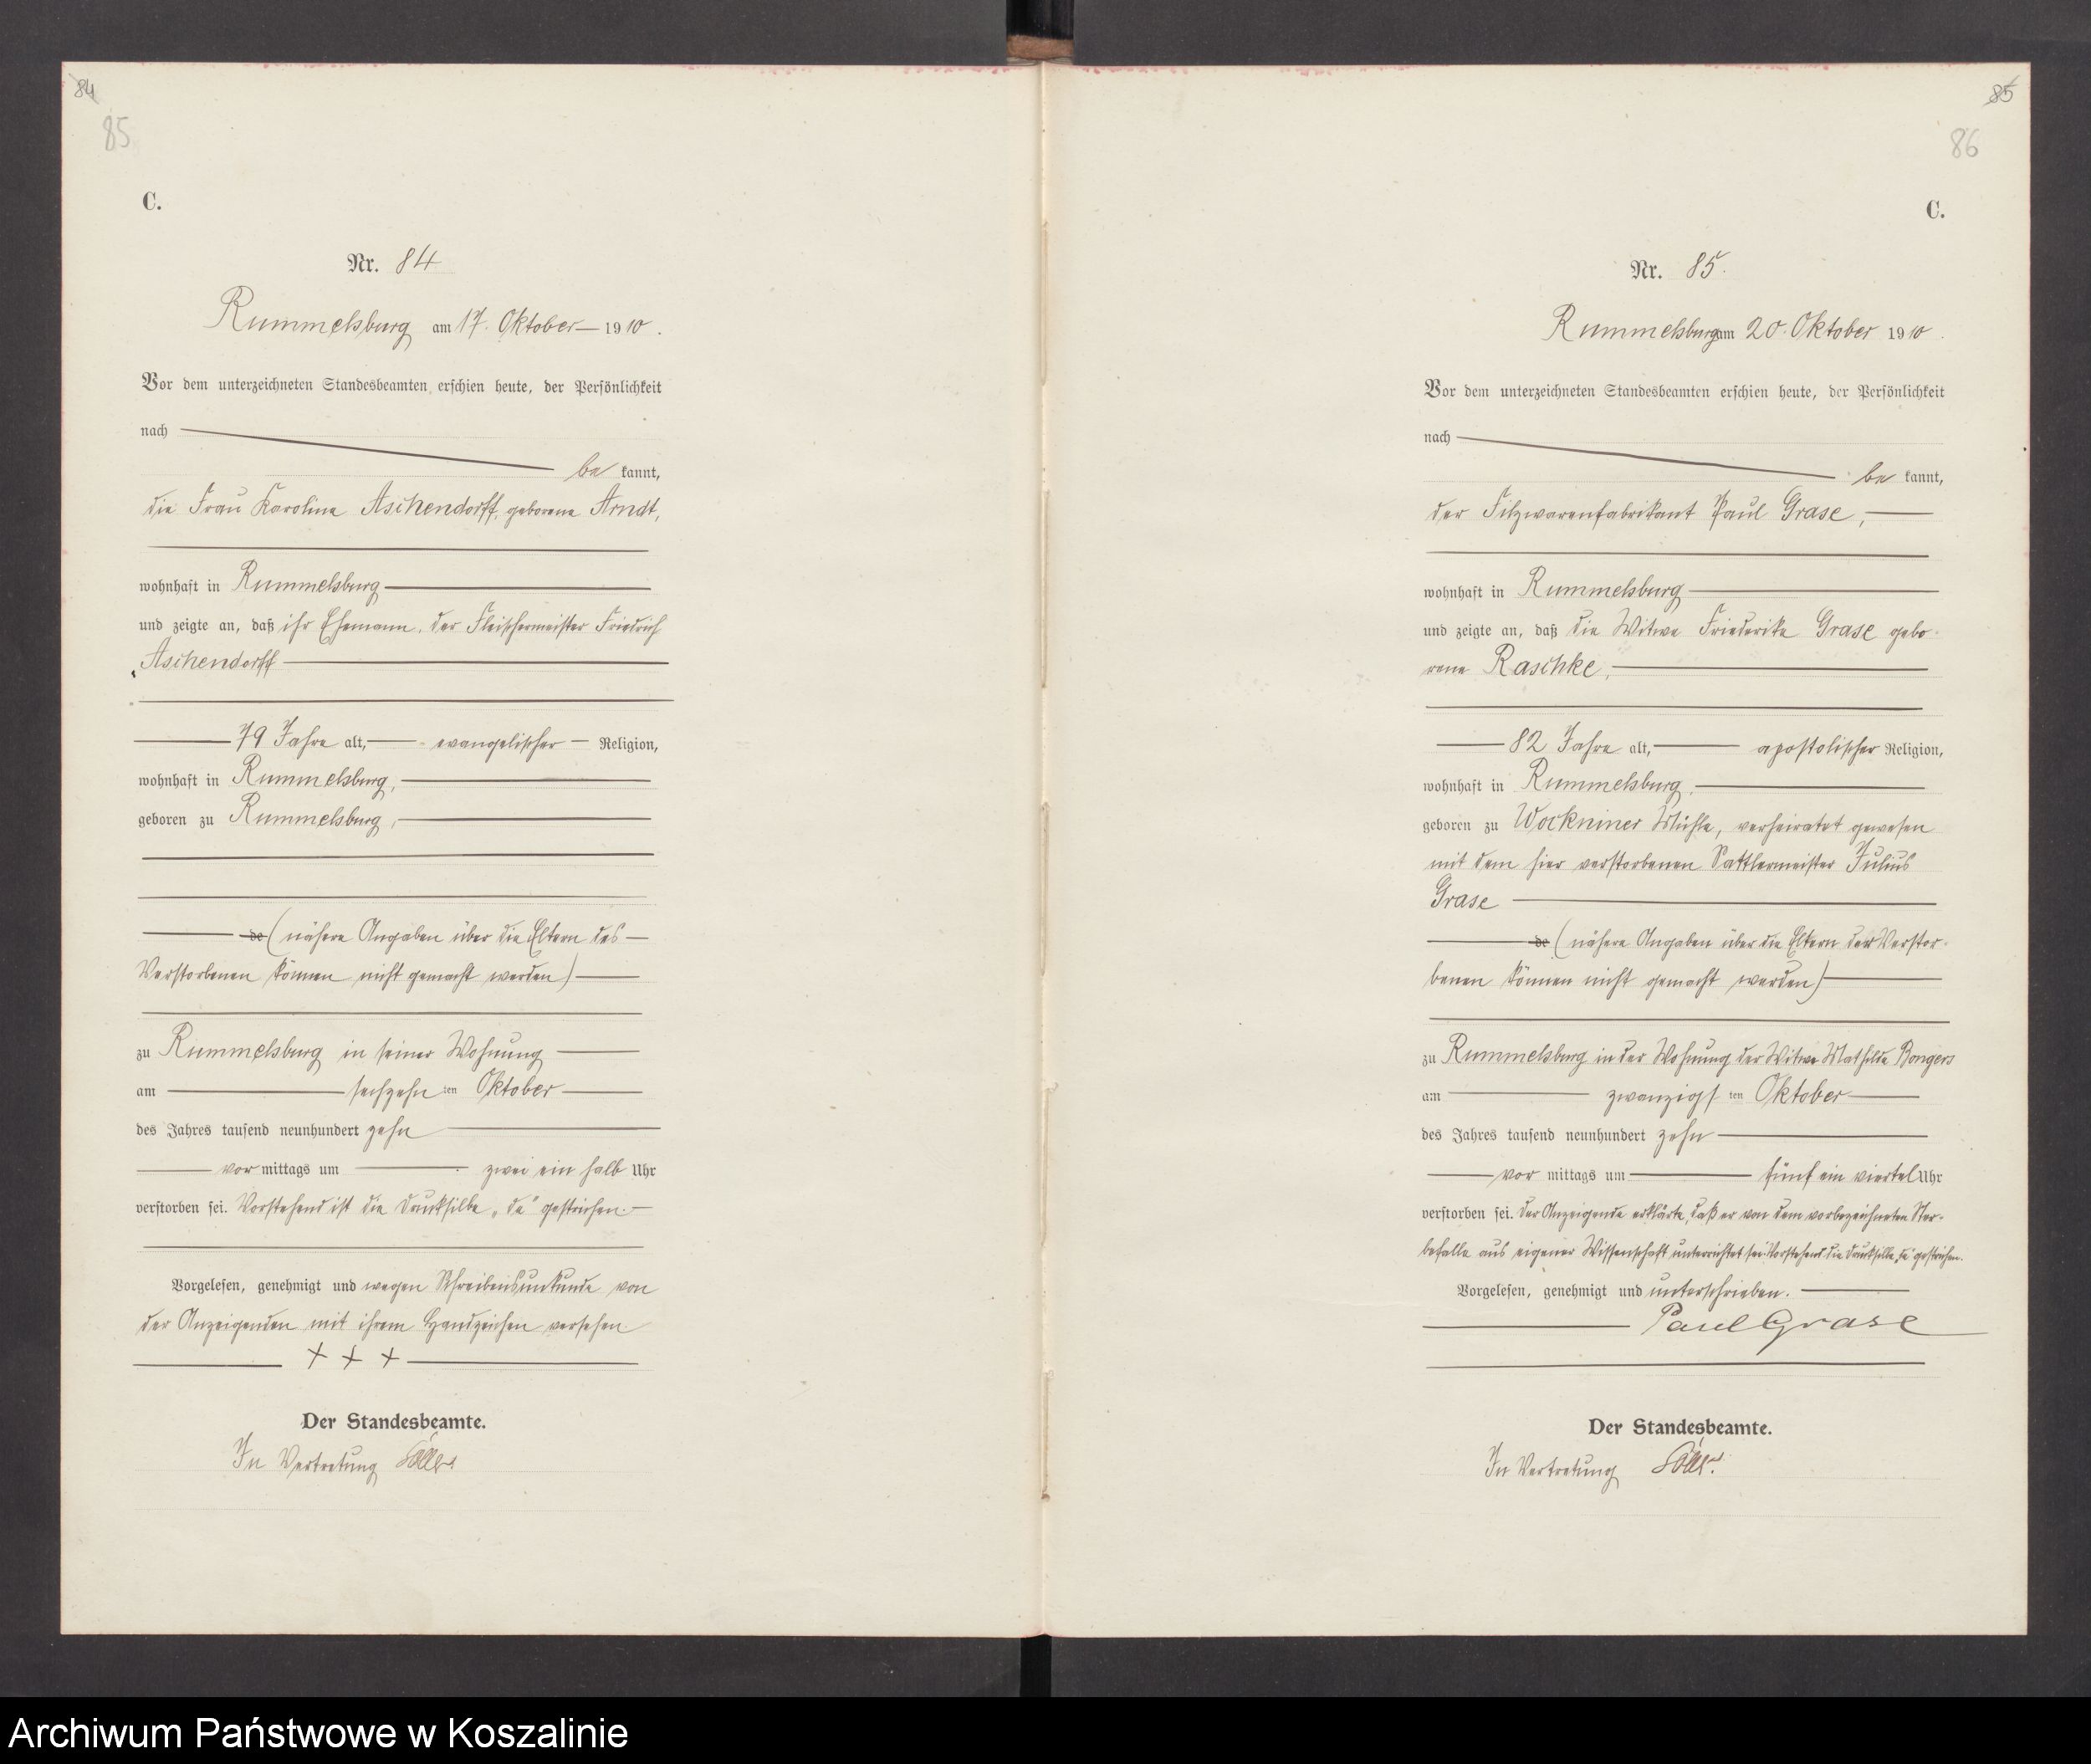 84
85
C.
Nr. 84
Rummelsburg am 17. Oktober 1910.
Vor dem unterzeichneten Standesbeamten erschien heute, der Persönlichkeit
nach
be kannt,
die Frau Karoline Aschendorff, geborene Arndt,
wohnhaft in Rummelsburg
und zeigte an, daß ihr Ehemann, der Fleischermeister Friedrich
Aschendorff
79 Jahre alt, evangelischer Religion,
wohnhaft in Rummelsburg,
geboren zu Rummelsburg,
de (nähere Angaben über die Eltern des
Verstorbenen können nicht gemacht werden)
zu Rummelsburg in seiner Wohnung
am sechzehn ten Oktober
des Jahres tausend neunhundert zehn
vor mittags um zwei ein halb Uhr
verstorben sei. Vorstehend ist die Drucksilbe „de" gestrichen.
Vorgelesen, genehmigt und wegen Schreibensunkunde von
der Anzeigenden mit ihrem Handzeichen versehen
+ + +
Der Standesbeamte.
In Vertretung
85
86
C.
Nr. 85.
Rummelsburg am 20. Oktober 1910.
Vor dem unterzeichneten Standesbeamten erschien heute, der Persönlichkeit
nach
be kannt,
der Filzwarenfabrikant Paul Grase,
wohnhaft in Rummelsburg
und zeigte an, daß die Witwe Friederike Grase gebo-
rene Raschke,
82 Jahre alt, apostolischer Religion,
wohnhaft in Rummelsburg,
geboren zu Wockniner Mühle, verheiratet gewesen
mit dem hier verstorbenen Sattlermeister Julius
Grase
de (nähere Angaben über die Eltern der Verstor-
benen können nicht gemacht werden)
zu Rummelsburg in der Wohnung der Witwe Mathilde Bongers
am zwanzigs ten Oktober
des Jahres tausend neunhundert zehn
vor mittags um fünf ein viertel Uhr
verstorben sei. Der Anzeigende erklärte, daß er von dem vorbezeichneten Ster-
befalle aus eigener Wissenschaft unterrichtet sei. Vorstehend die Drucksilbe „de" gestrichen.
Vorgelesen, genehmigt und unterschrieben.
Paul Grase
Der Standesbeamte.
In Vertretung
Archiwum Państwowe w Koszalinie